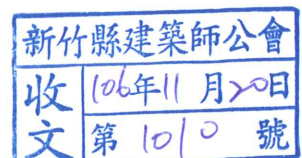 新竹縣建築師公會
收文
106年11月20日
第1010號